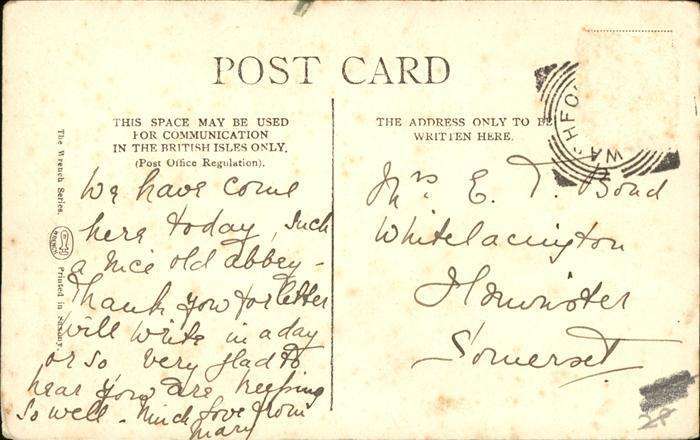 POST CARD
THIS SPACE MAY BE USED
FOR COMMUNICATION
IN THE BRITISH ISLES ONLY.
(Post Office Regulation).
The Wrench Series.
WRENCH
Printed in Saxony.
We have come
here today, such
a nice old abbey -
Thank you for letter
will write in a day
or so very glad to
hear you are keeping
so well - Much love from
Mary
THE ADDRESS ONLY TO BE
WRITTEN HERE.
Mrs E. T. Bond
Whitelackington
Ilminster
Somerset
2P